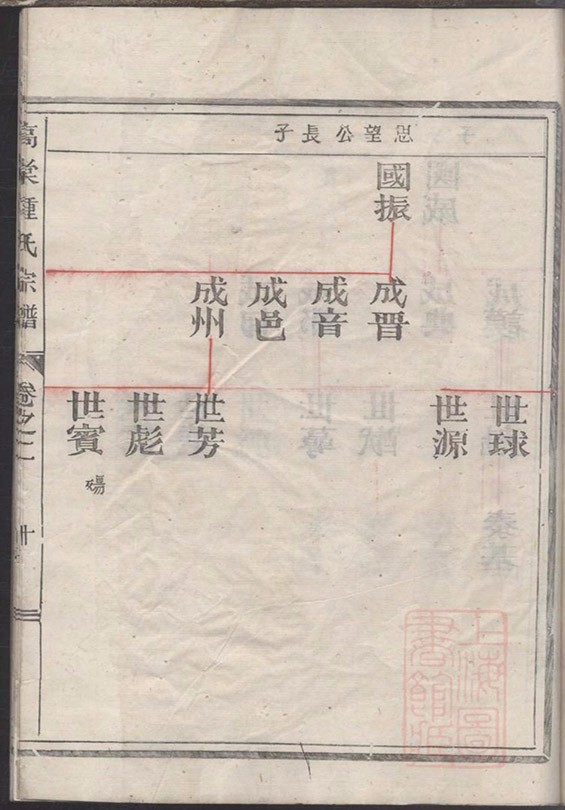 思望公長子
國振
成晋
成音
成邑
成州
世球
世源
世芳
世彪
世賓
殤
高棠鍾氏宗譜
卷之二
十
上海圖書館